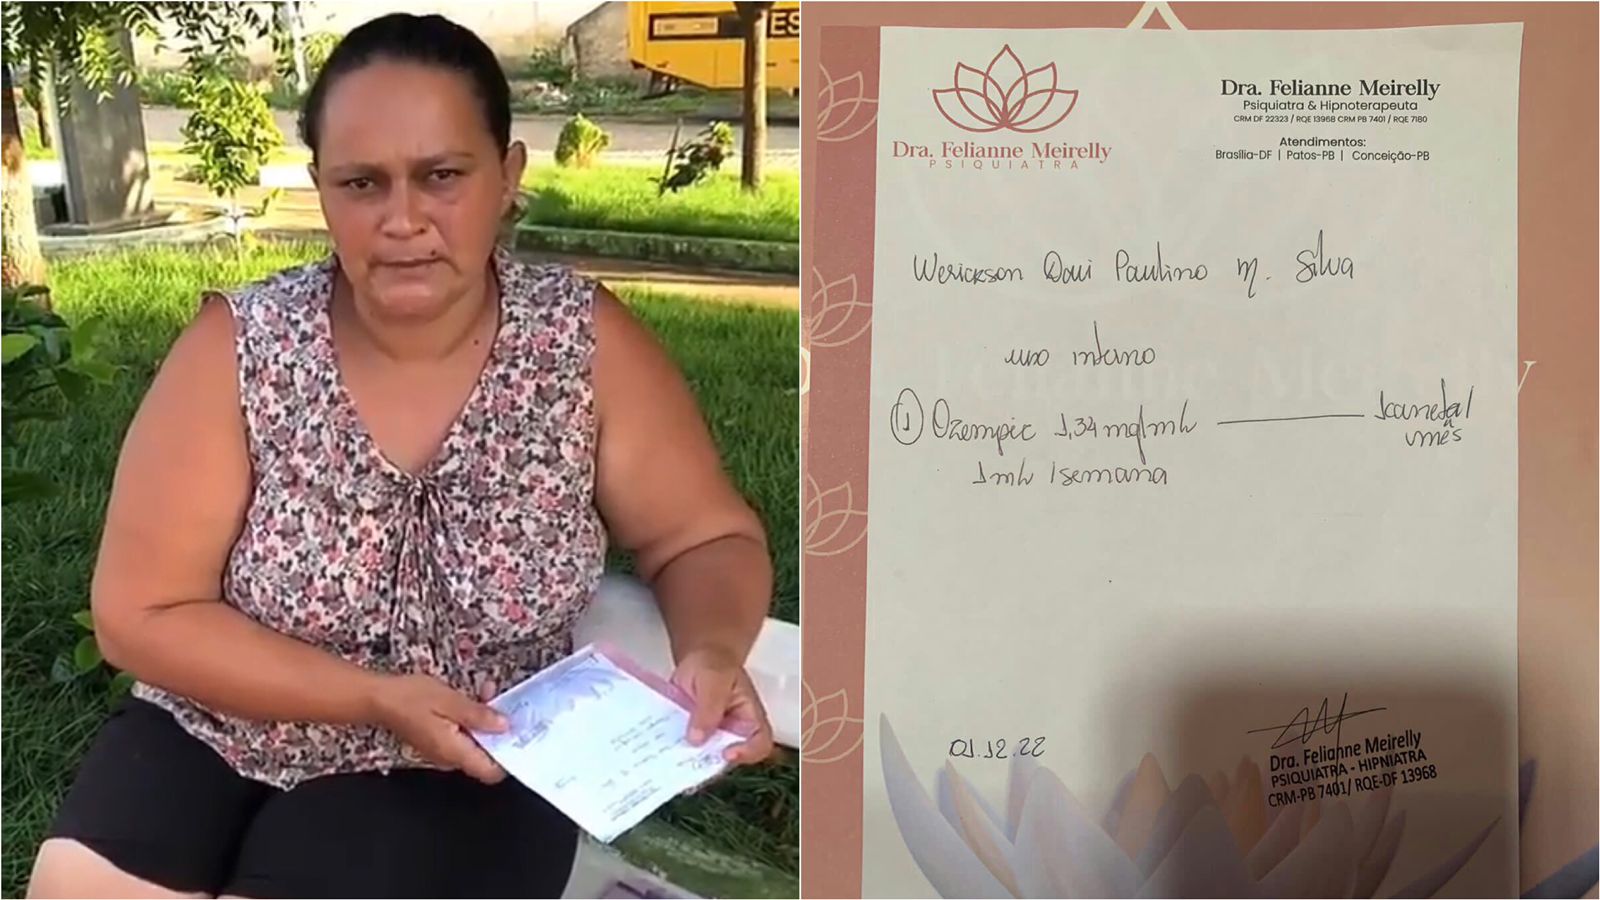 ES
Dra. Felianne Meirelly
PSIQUIATRA
Dra. Felianne Meirelly
Psiquiatra & Hipnoterapeuta
CRM DF 22323 / RQE 13968 CRM PB 7401 / RQE 7180
Atendimentos:
Brasília-DF | Patos-PB | Conceição-PB
Werickson Davi Paulino M. Silva
uso interno
1) Ozempic 1,34mg/ml 1caneta/
mês
1ml 1semana
01.12.22
Dra. Felianne Meirelly
PSIQUIATRA - HIPNIATRA
CRM-PB 7401/ RQE-DF 13968